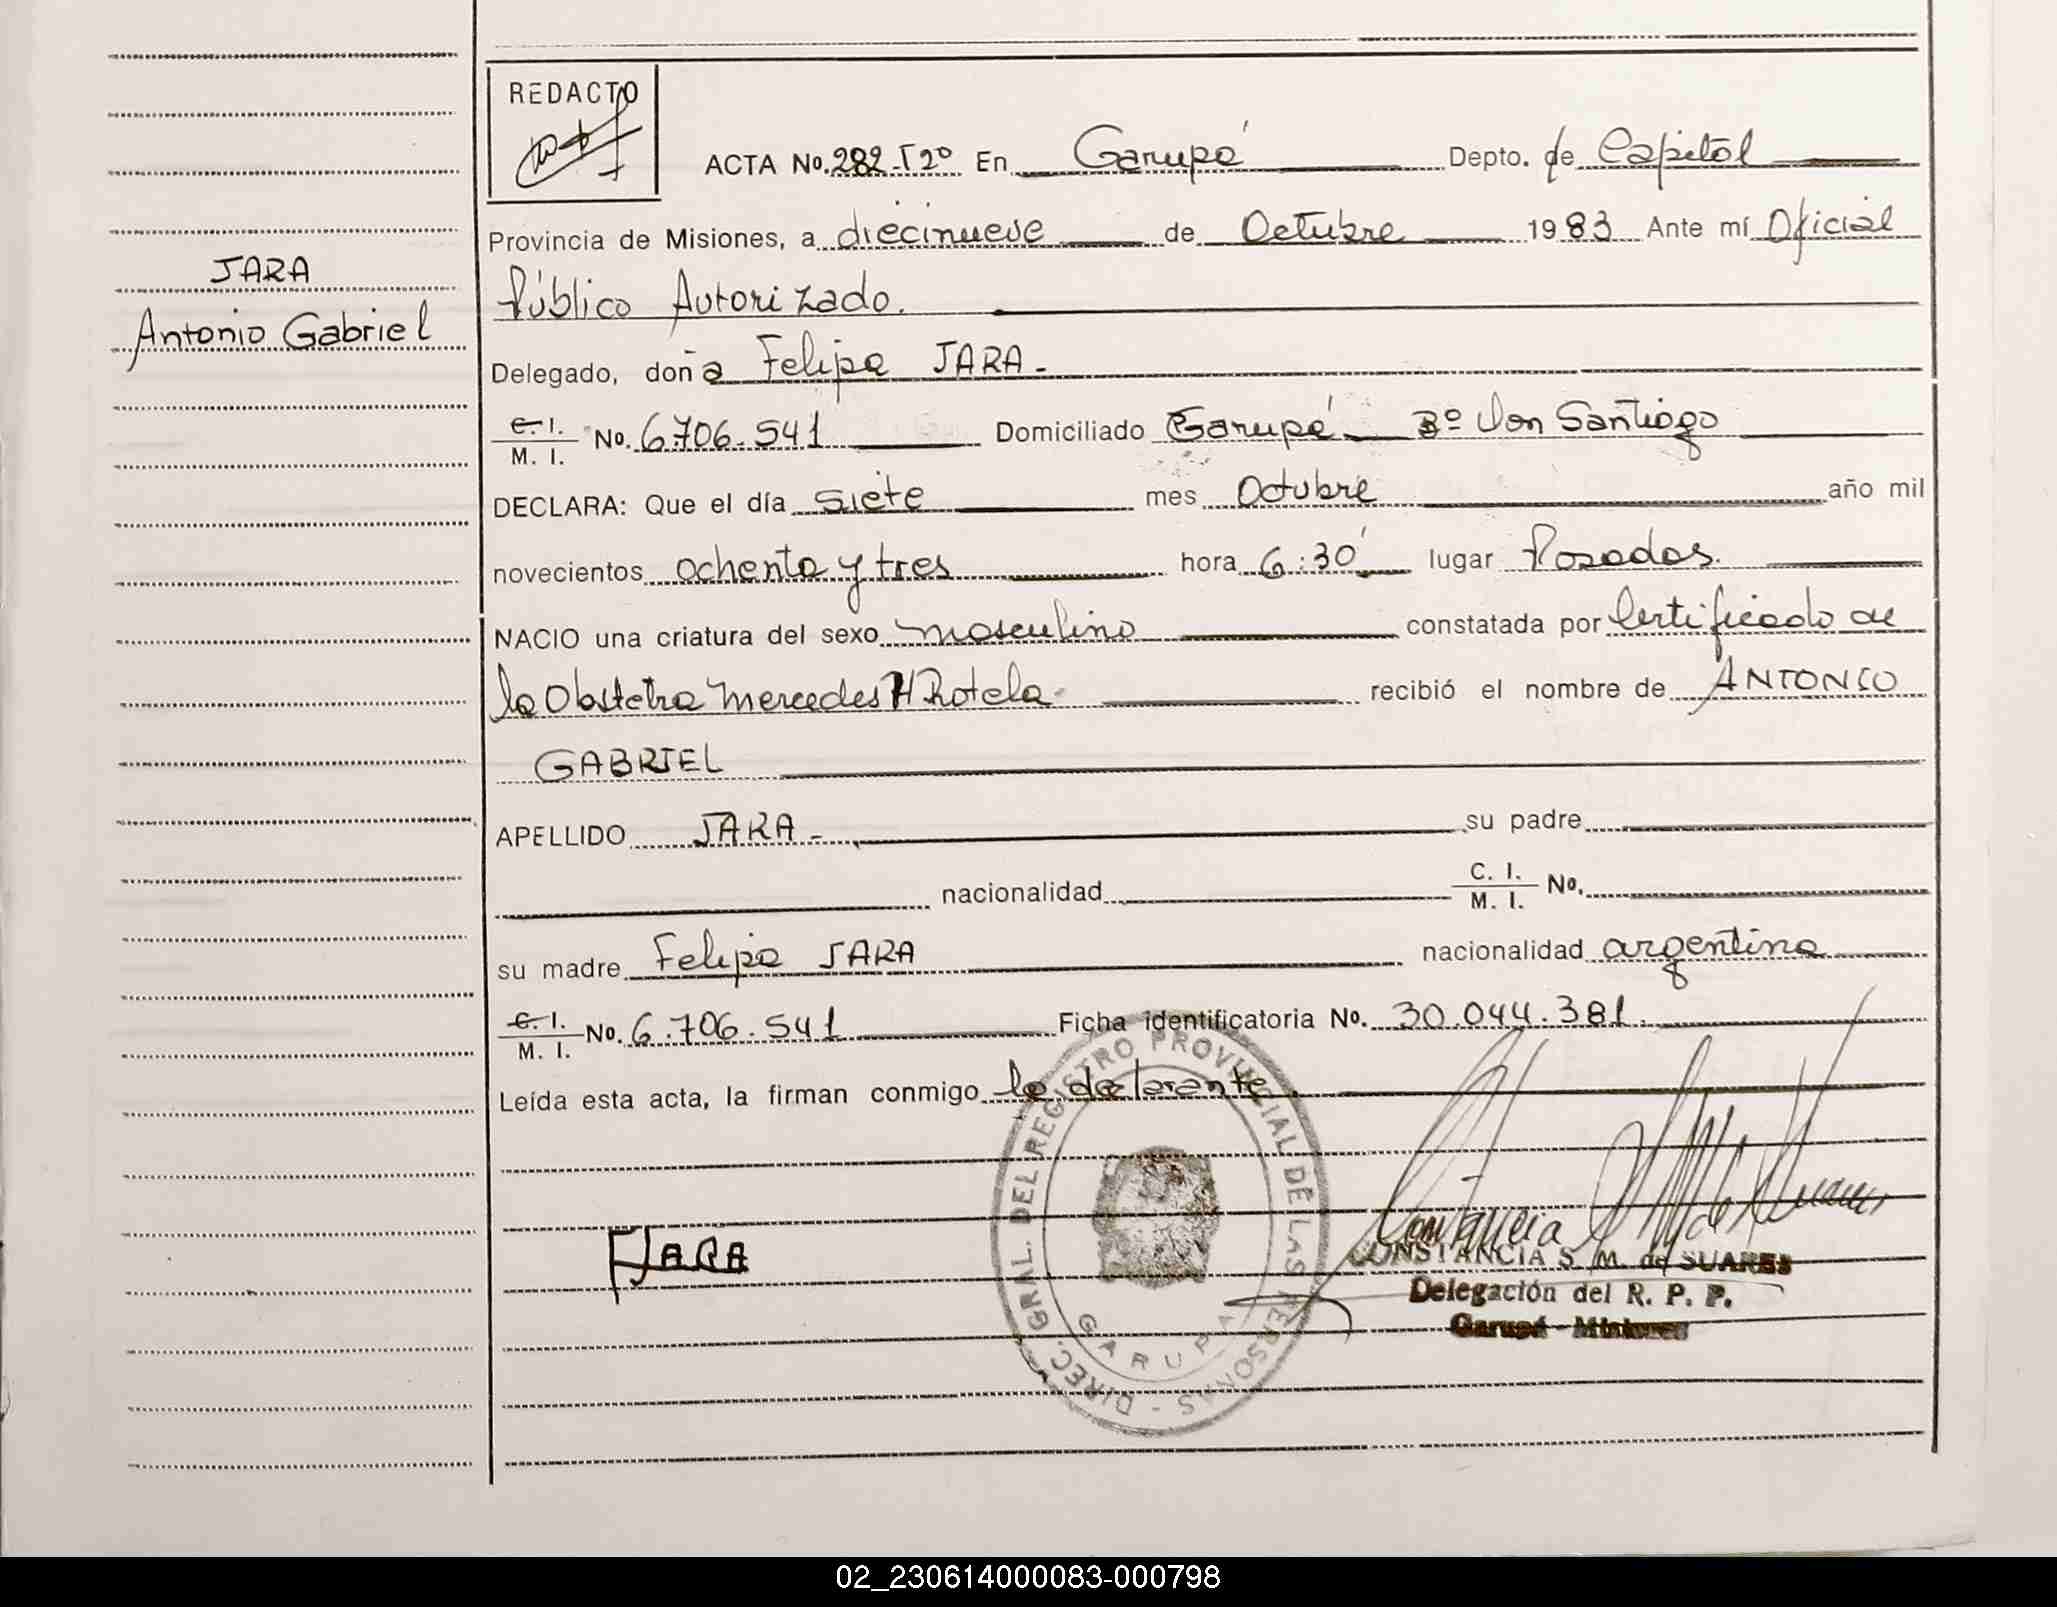 REDACTO
ACTA No. 282-T2º En Garupá Depto. de Capital
Provincia de Misiones, a diecinueve de Octubre 1983 Ante mí Oficial
Público Autorizado.
JARA
Antonio Gabriel
Delegado, doña Felipa JARA-
C. I.
M. I. No. 6.706.541 Domiciliado Garupá Bº Don Santiago
DECLARA: Que el día siete mes Octubre año mil
novecientos ochenta y tres hora 6:30' lugar Posadas.
NACIO una criatura del sexo masculino constatada por Certificado de
la Obstetra Mercedes H Rotela recibió el nombre de ANTONIO
GABRIEL
APELLIDO JARA- su padre
nacionalidad C. I.
M. I. No.
su madre Felipa JARA nacionalidad argentina
C. I.
M. I. No. 6.706.541 Ficha identificatoria No. 30.044.381.
Leída esta acta, la firman conmigo la declarante.
DIREC. GRAL. DEL REGISTRO PROVINCIAL DE LAS PERSONAS -
GARUPA
F JARA
CONSTANCIA S. M. de SUARES
Delegación del R. P. P.
Garupá - Misiones
02_230614000083-000798